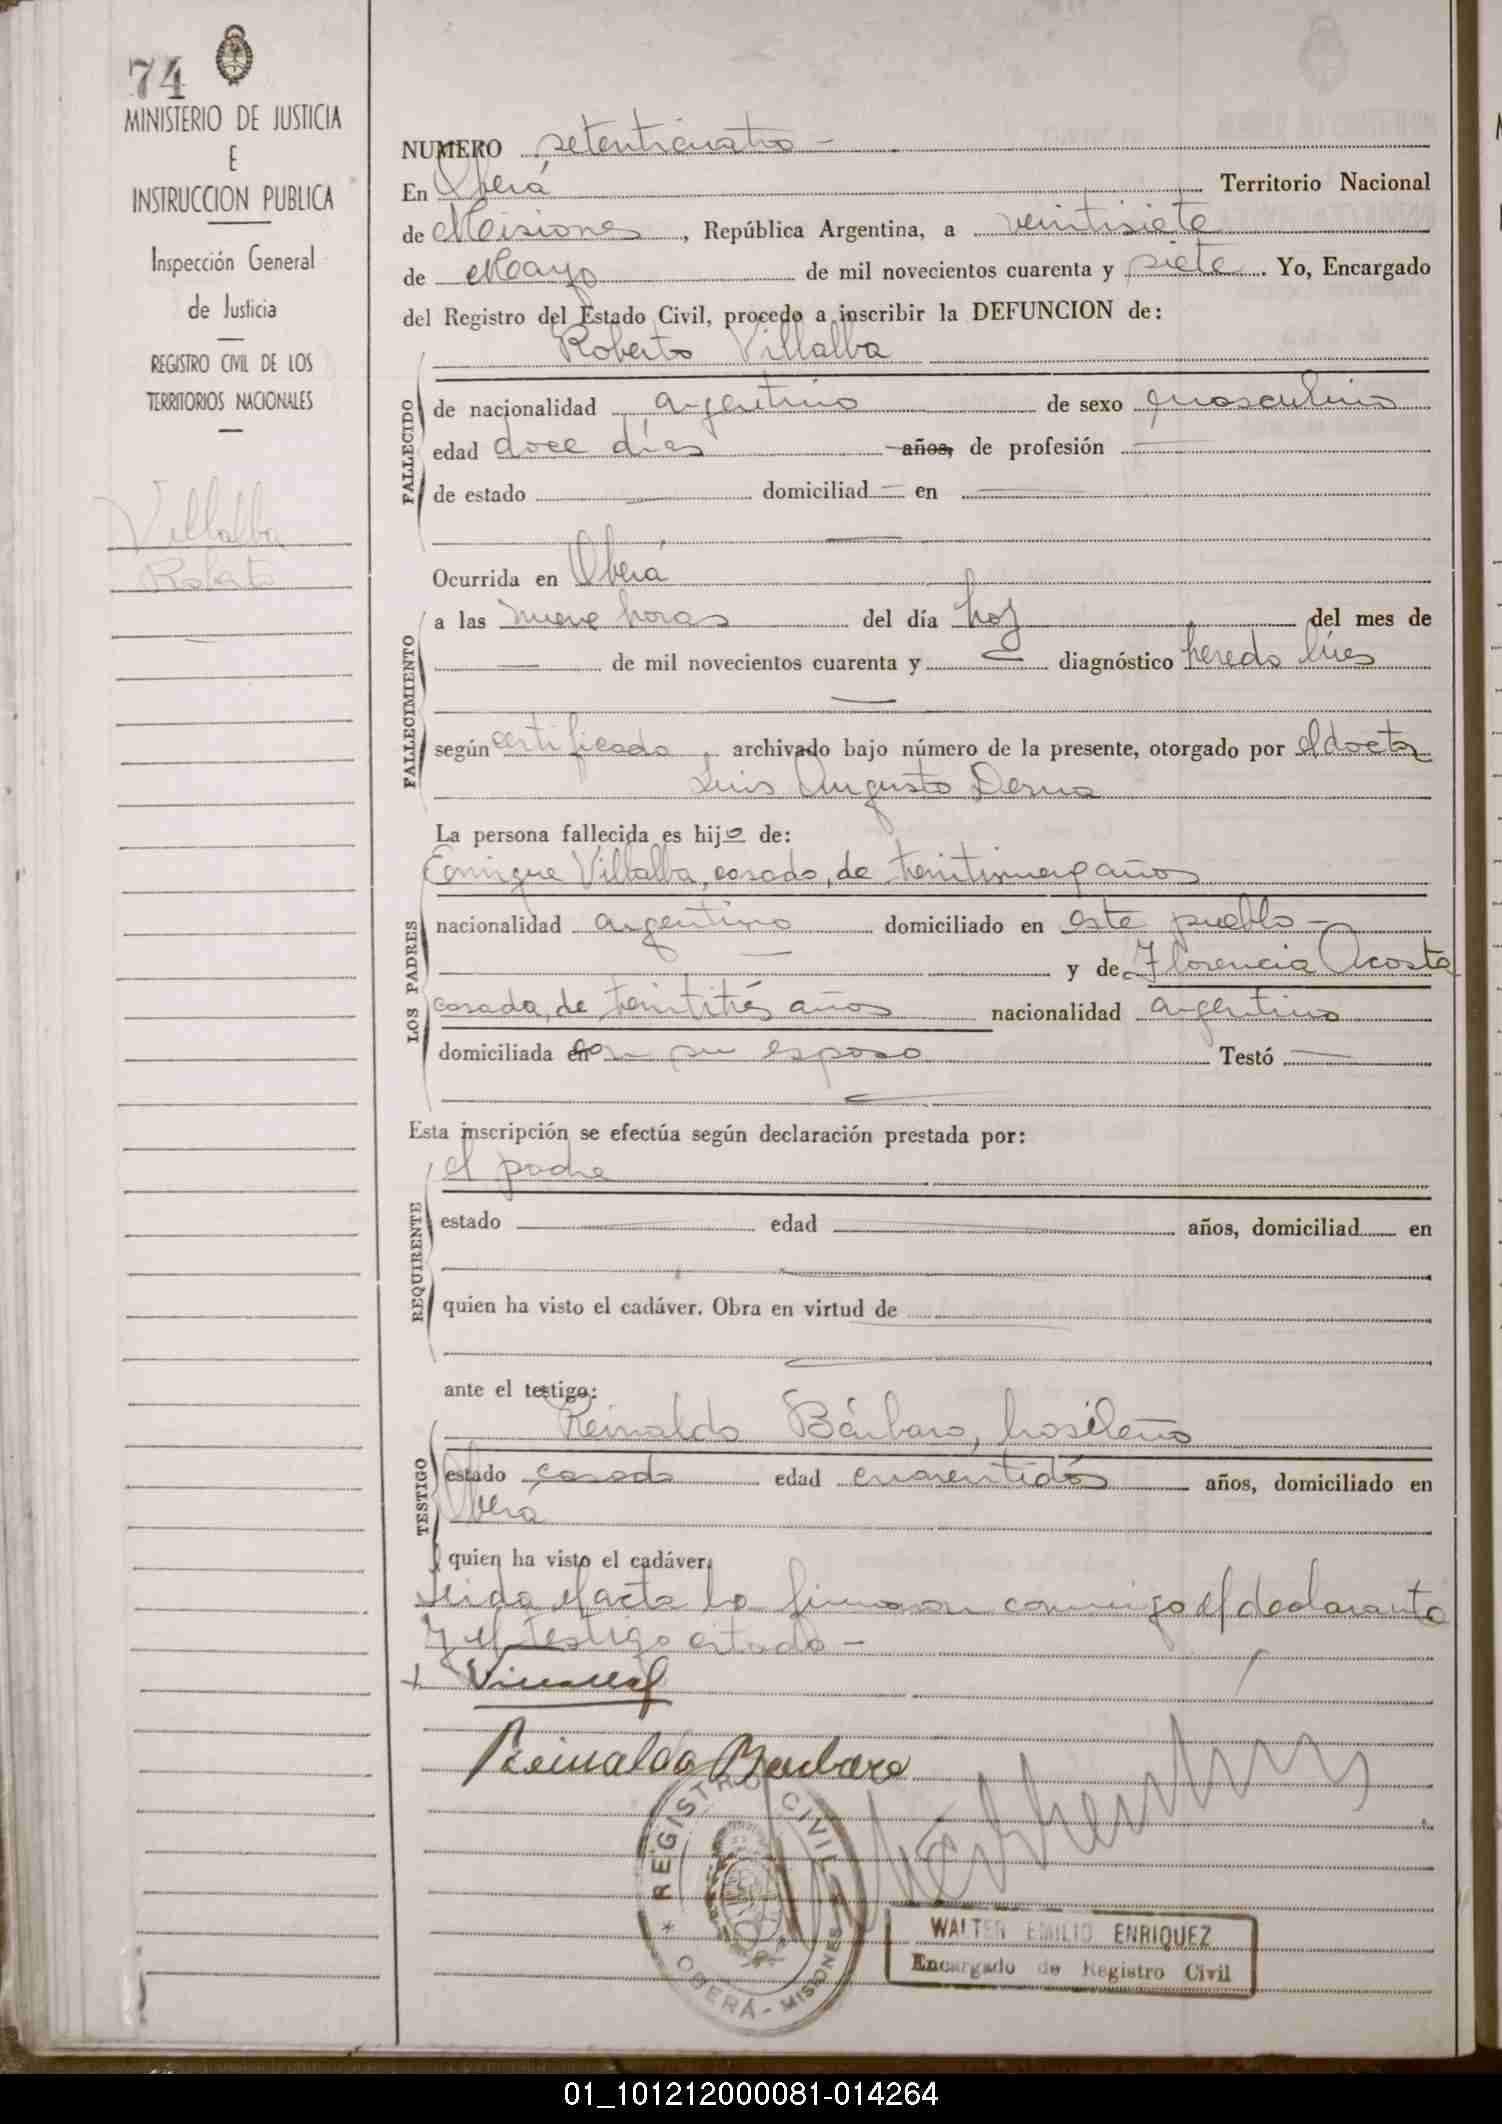 74
MINISTERIO DE JUSTICIA
E
INSTRUCCION PUBLICA
Inspección General
de Justicia
REGISTRO CIVIL DE LOS
TERRITORIOS NACIONALES
Villalba
Roberto
NUMERO setenticuatro -
En Oberá Territorio Nacional
de Misiones, República Argentina, a veintisiete
de Mayo de mil novecientos cuarenta y siete. Yo, Encargado
del Registro del Estado Civil, procedo a inscribir la DEFUNCION de:
Roberto Villalba
FALLECIDO
de nacionalidad argentino de sexo masculino
edad doce días años, de profesión
de estado domiciliad en
Ocurrida en Oberá
FALLECIMIENTO
a las nueve horas del día hoy del mes de
de mil novecientos cuarenta y diagnóstico heredo lúes
según certificado, archivado bajo número de la presente, otorgado por el doctor
Luis Augusto Derna
La persona fallecida es hijo de:
LOS PADRES
Enrique Villalba, casado, de treintinueve años
nacionalidad argentino domiciliado en este pueblo -
y de Florencia Acosta
casada, de treintitrés años nacionalidad argentina
domiciliada con su esposo Testó
Esta inscripción se efectúa según declaración prestada por:
REQUIRENTE
el padre
estado edad años, domiciliad en
quien ha visto el cadáver. Obra en virtud de
ante el testigo:
TESTIGO
Reinaldo Bárbaro, brasileño
estado casado edad cuarentidós años, domiciliado en
Oberá
quien ha visto el cadáver.
Leida el acta la firmaron conmigo el declarante
y el testigo citado -
Reinaldo Barbaro
REGISTRO CIVIL
* OBERÁ - MISIONES *
WALTER EMILIO ENRIQUEZ
Encargado de Registro Civil
01_101212000081-014264